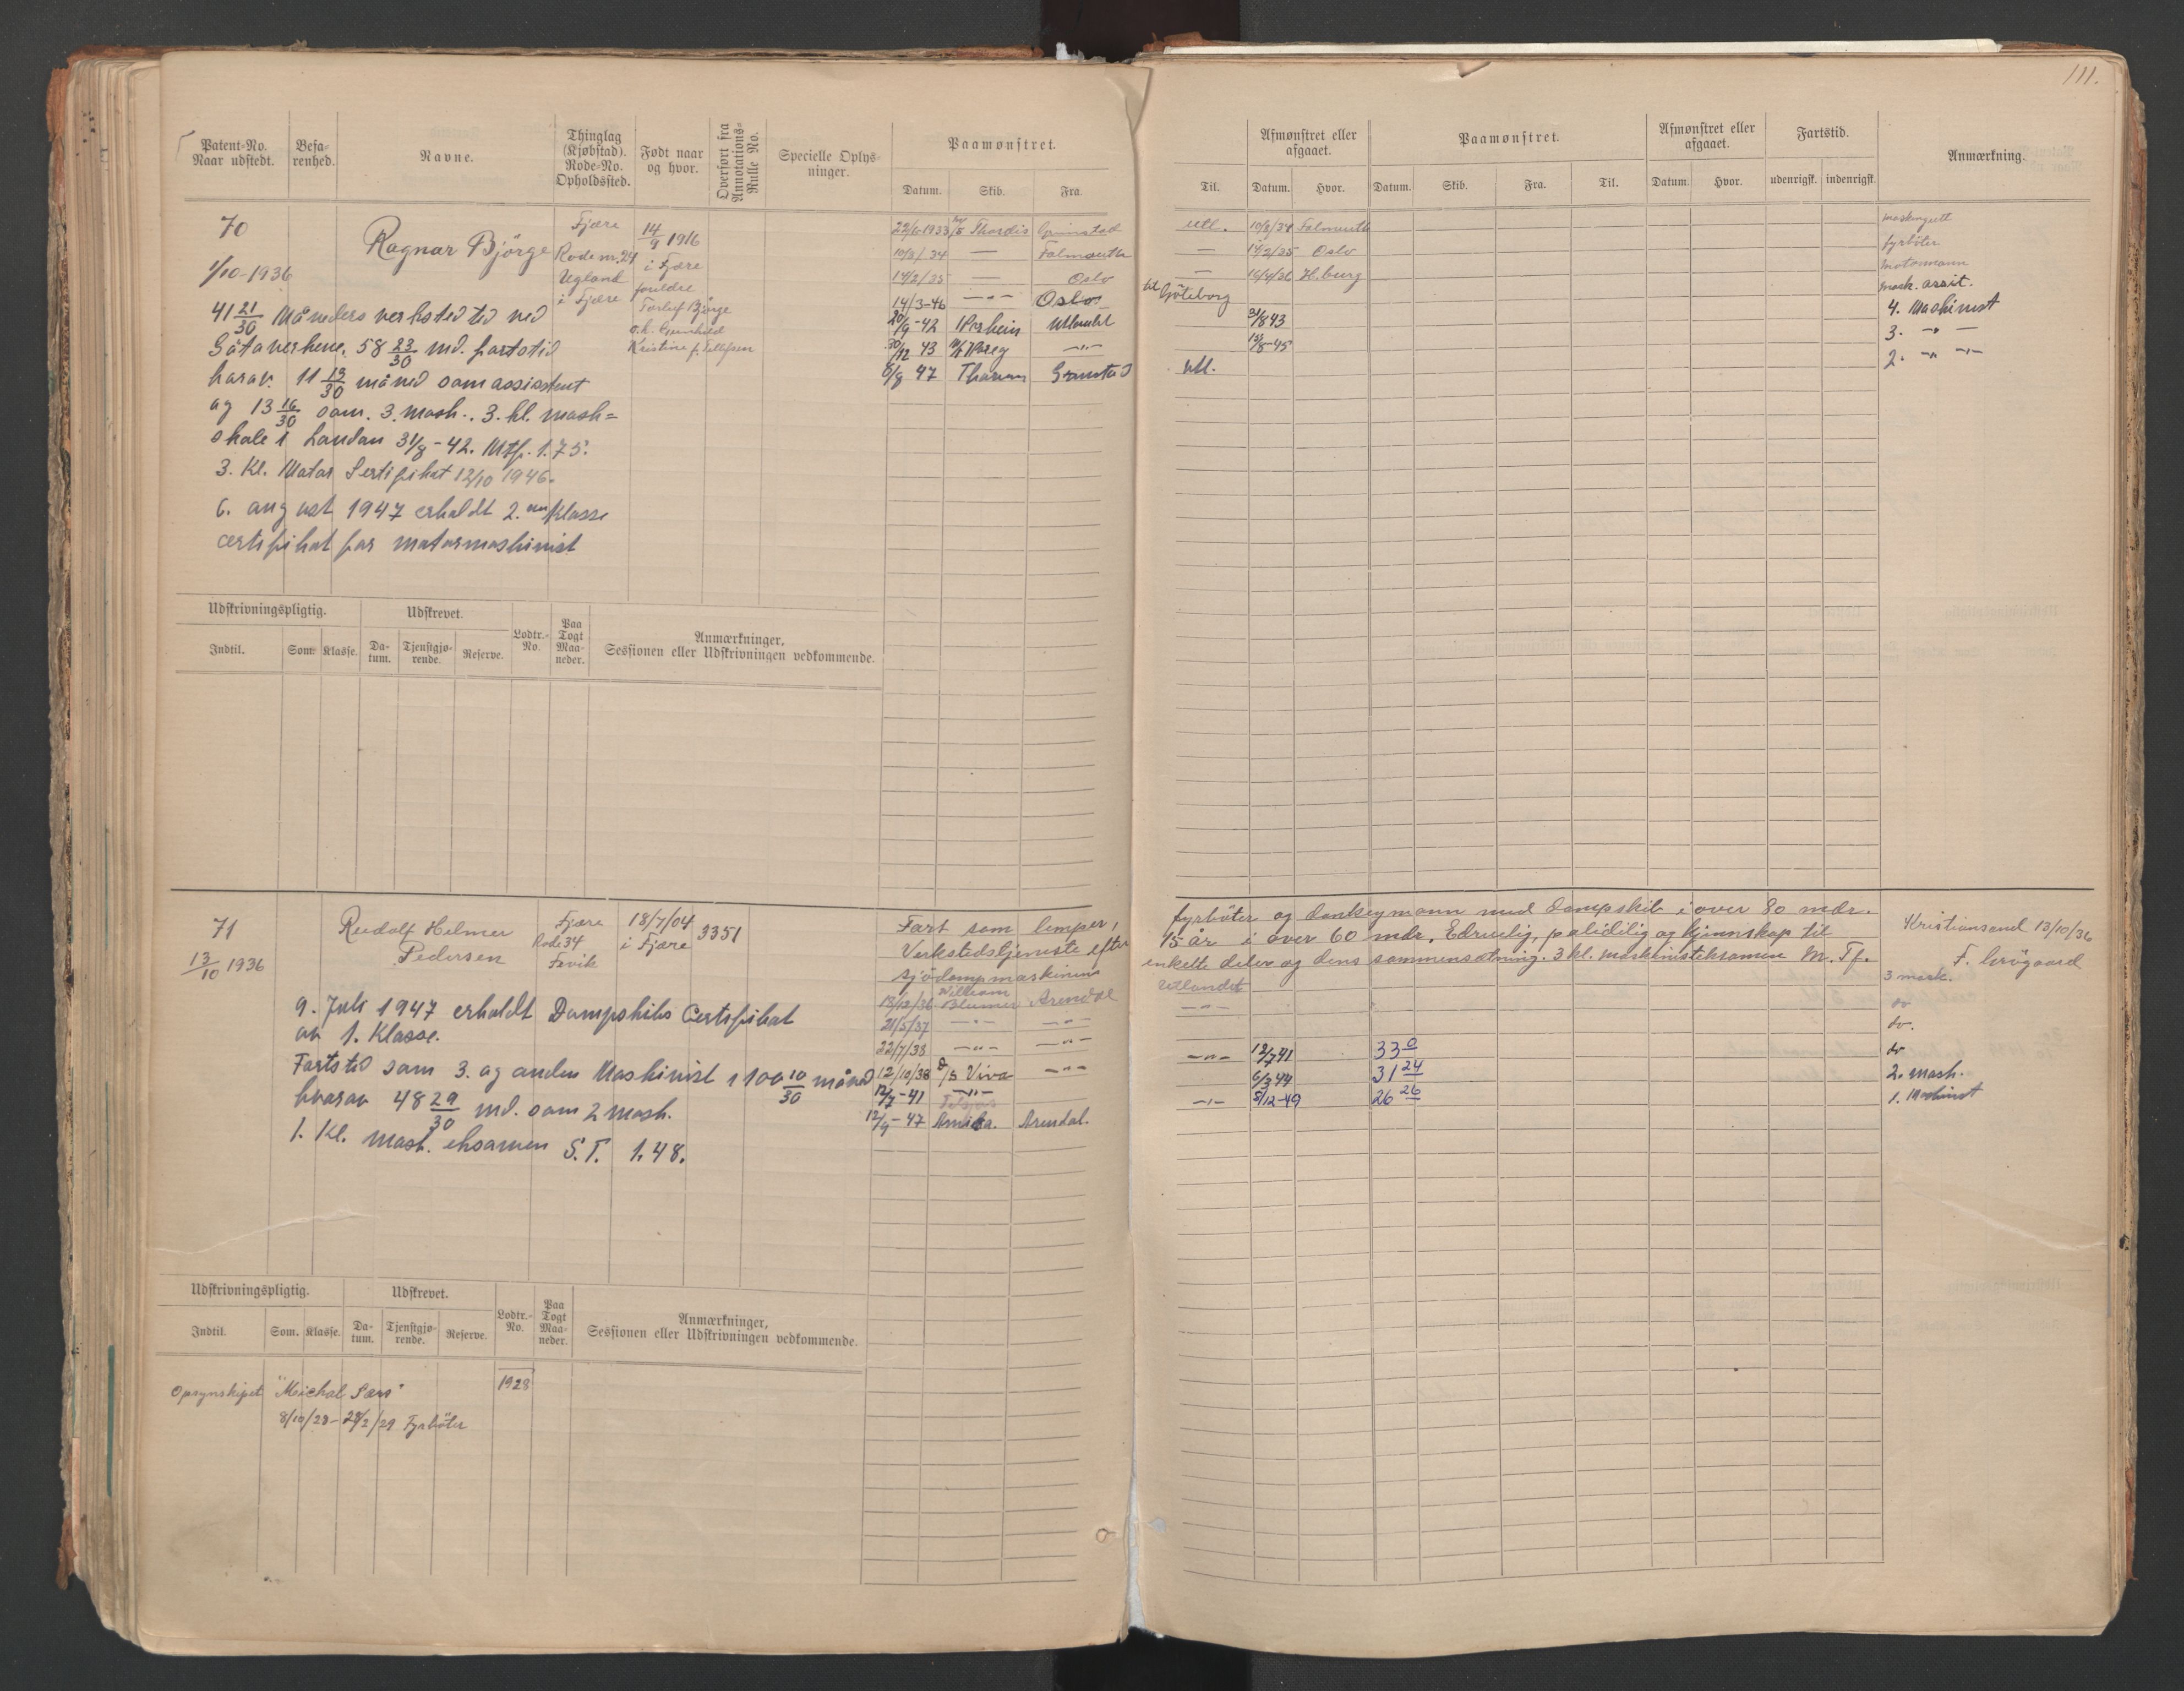 111.
Patent-No. Naar udstedt.
Befarenhed.
Navne.
Thinglag (Kjøbstad). Rode-No. Opholdssted.
Født naar og hvor.
Overført fra Annotations-Rulle No.
Specielle Oplysninger.
Paamønstret.
Datum. Skib. Fra.
Til.
Afmønstret eller afgaaet.
Datum. Hvor.
Paamønstret.
Datum. Skib. Fra. Til.
Afmønstret eller afgaaet.
Datum. Hvor.
Fartstid.
udenrigsk. indenrigsk.
Anmærkning.
70
1/10-1936
Ragnar Björge
Fjære
Rode nr. 24
Ugland
i Fjære
14/9 1916
i Fjære
foreldre
Torlef Björge
o. h. Gunhild
Kristine f. Tellefsen
41 21/30 Måneders verksted tid ved
Götaverkene. 58 23/30 md. fartstid
harav. 11 13/30 måned som assistent
og 13 16/30 som. 3. mask.. 3. kl. mask=
skole i London 31/8-42. Mtf. 1.75.
3. Kl. Motor Sertifikat 12/10 1946.
6. august 1947 erholdt 2. Klasse
certifikat for motormaskinist
22/6 1933 M/S Thordis Grimstad utl. 10/8/34 Falmouth maskingutt
10/8/34 — Falmouth — 14/2/35 Oslo fyrböter
14/2/35 — Oslo — 16/4/36 H.burg motormann
14/3-46 —"— Oslo til Göteborg mask. assit.
20/9-42 Utlandet 21/8 43 4. Maskinist
30/12 43 M/S —"— 15/8-45 3. —"—
8/8 47 Grimstad utl. 2. —"— —"—
Udskrivningspligtig.
Indtil. Som. Klasse.
Udskrevet.
Datum. Tjenstgjørende. Reserve.
Lodtr.-No.
Paa Togt Maaneder.
Anmærkninger, Sessionen eller Udskrivningen vedkommende.
71
13/10 1936
Rudolf Helmer
Pedersen
Fjære
Rode 34
Fevik
18/7/04
i Fjære
3351
Fart som lemper, fyrböter og donkeymann med dampskib i over 80 mdr.
Verkstedstjeneste efter 15 år i over 60 mdr. Edruelig, pålidelig og kjennskap til
sjödampmaskinens enkelte deler og dens sammensætning. 3 kl. maskinisteksamen M. Tf.
Kristiansand 13/10/36
9. Juli 1947 erholdt Dampskibs Certifikat
av 1. Klasse.
Fartstid som 3. og anden Maskinist i 100 10/30 måned
hvorav 48 29/30 md. som 2 mask.
1. Kl. mask. eksamen S.T. 1.48.
13/12/36 William Blumer Arendal Utlandet 3 mask.
21/5/37 —"— —"— —"— do
22/7/38 —"— —"— do.
12/10/38 D/S Viva —"— —"— 12/7 41 33 0 do
12/7-41 —"— 6/3 44 31 24 2. mask.
12/9-47 Arendal. —"— 5/12-49 26 26 1. Maskinist
Udskrivningspligtig.
Indtil. Som. Klasse.
Udskrevet.
Datum. Tjenstgjørende. Reserve.
Lodtr.-No.
Paa Togt Maaneder.
Anmærkninger, Sessionen eller Udskrivningen vedkommende.
Opsynskipet "Michal Sars" 1928
8/10/28 - 28/2/29 Fyrböter